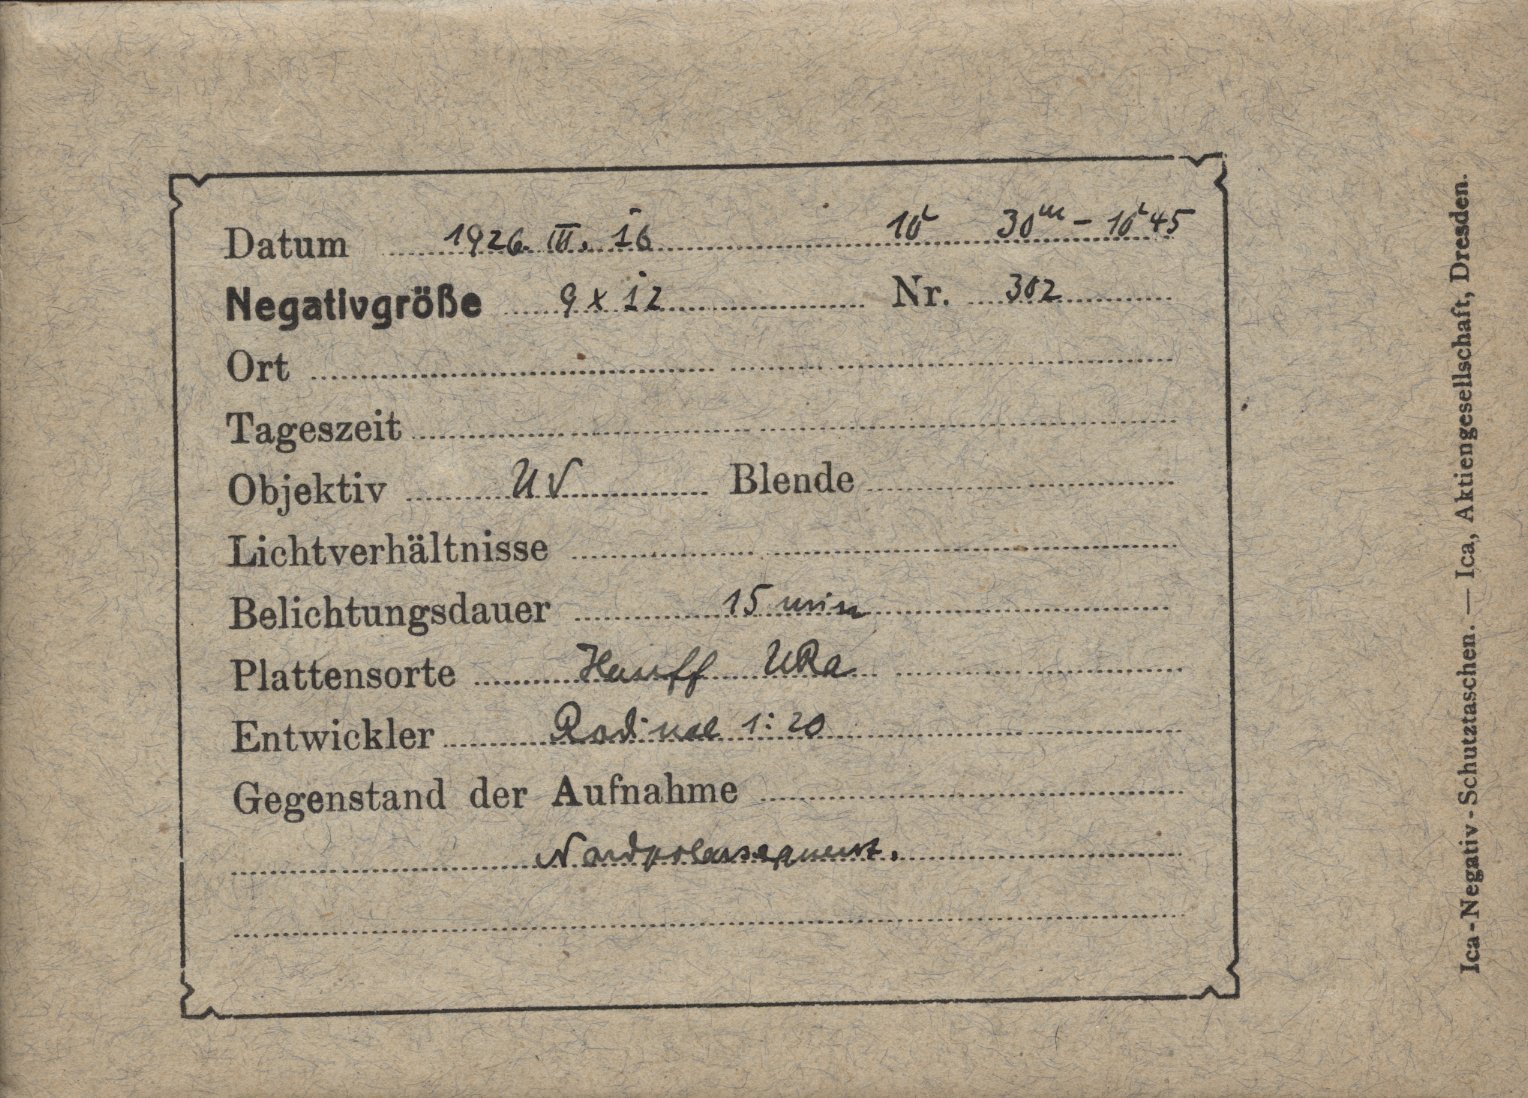 Datum 1926. III. 16 10h 30m – 10h 45
Negativgröße 9 x 12 Nr. 302
Ort
Tageszeit
Objektiv UV Blende
Lichtverhältnisse
Belichtungsdauer 15 min
Plattensorte Hauff URa
Entwickler Rodinal 1:20
Gegenstand der Aufnahme
Nordpolarsequenz.
Ica-Negativ-Schutztaschen. — Ica, Aktiengesellschaft, Dresden.